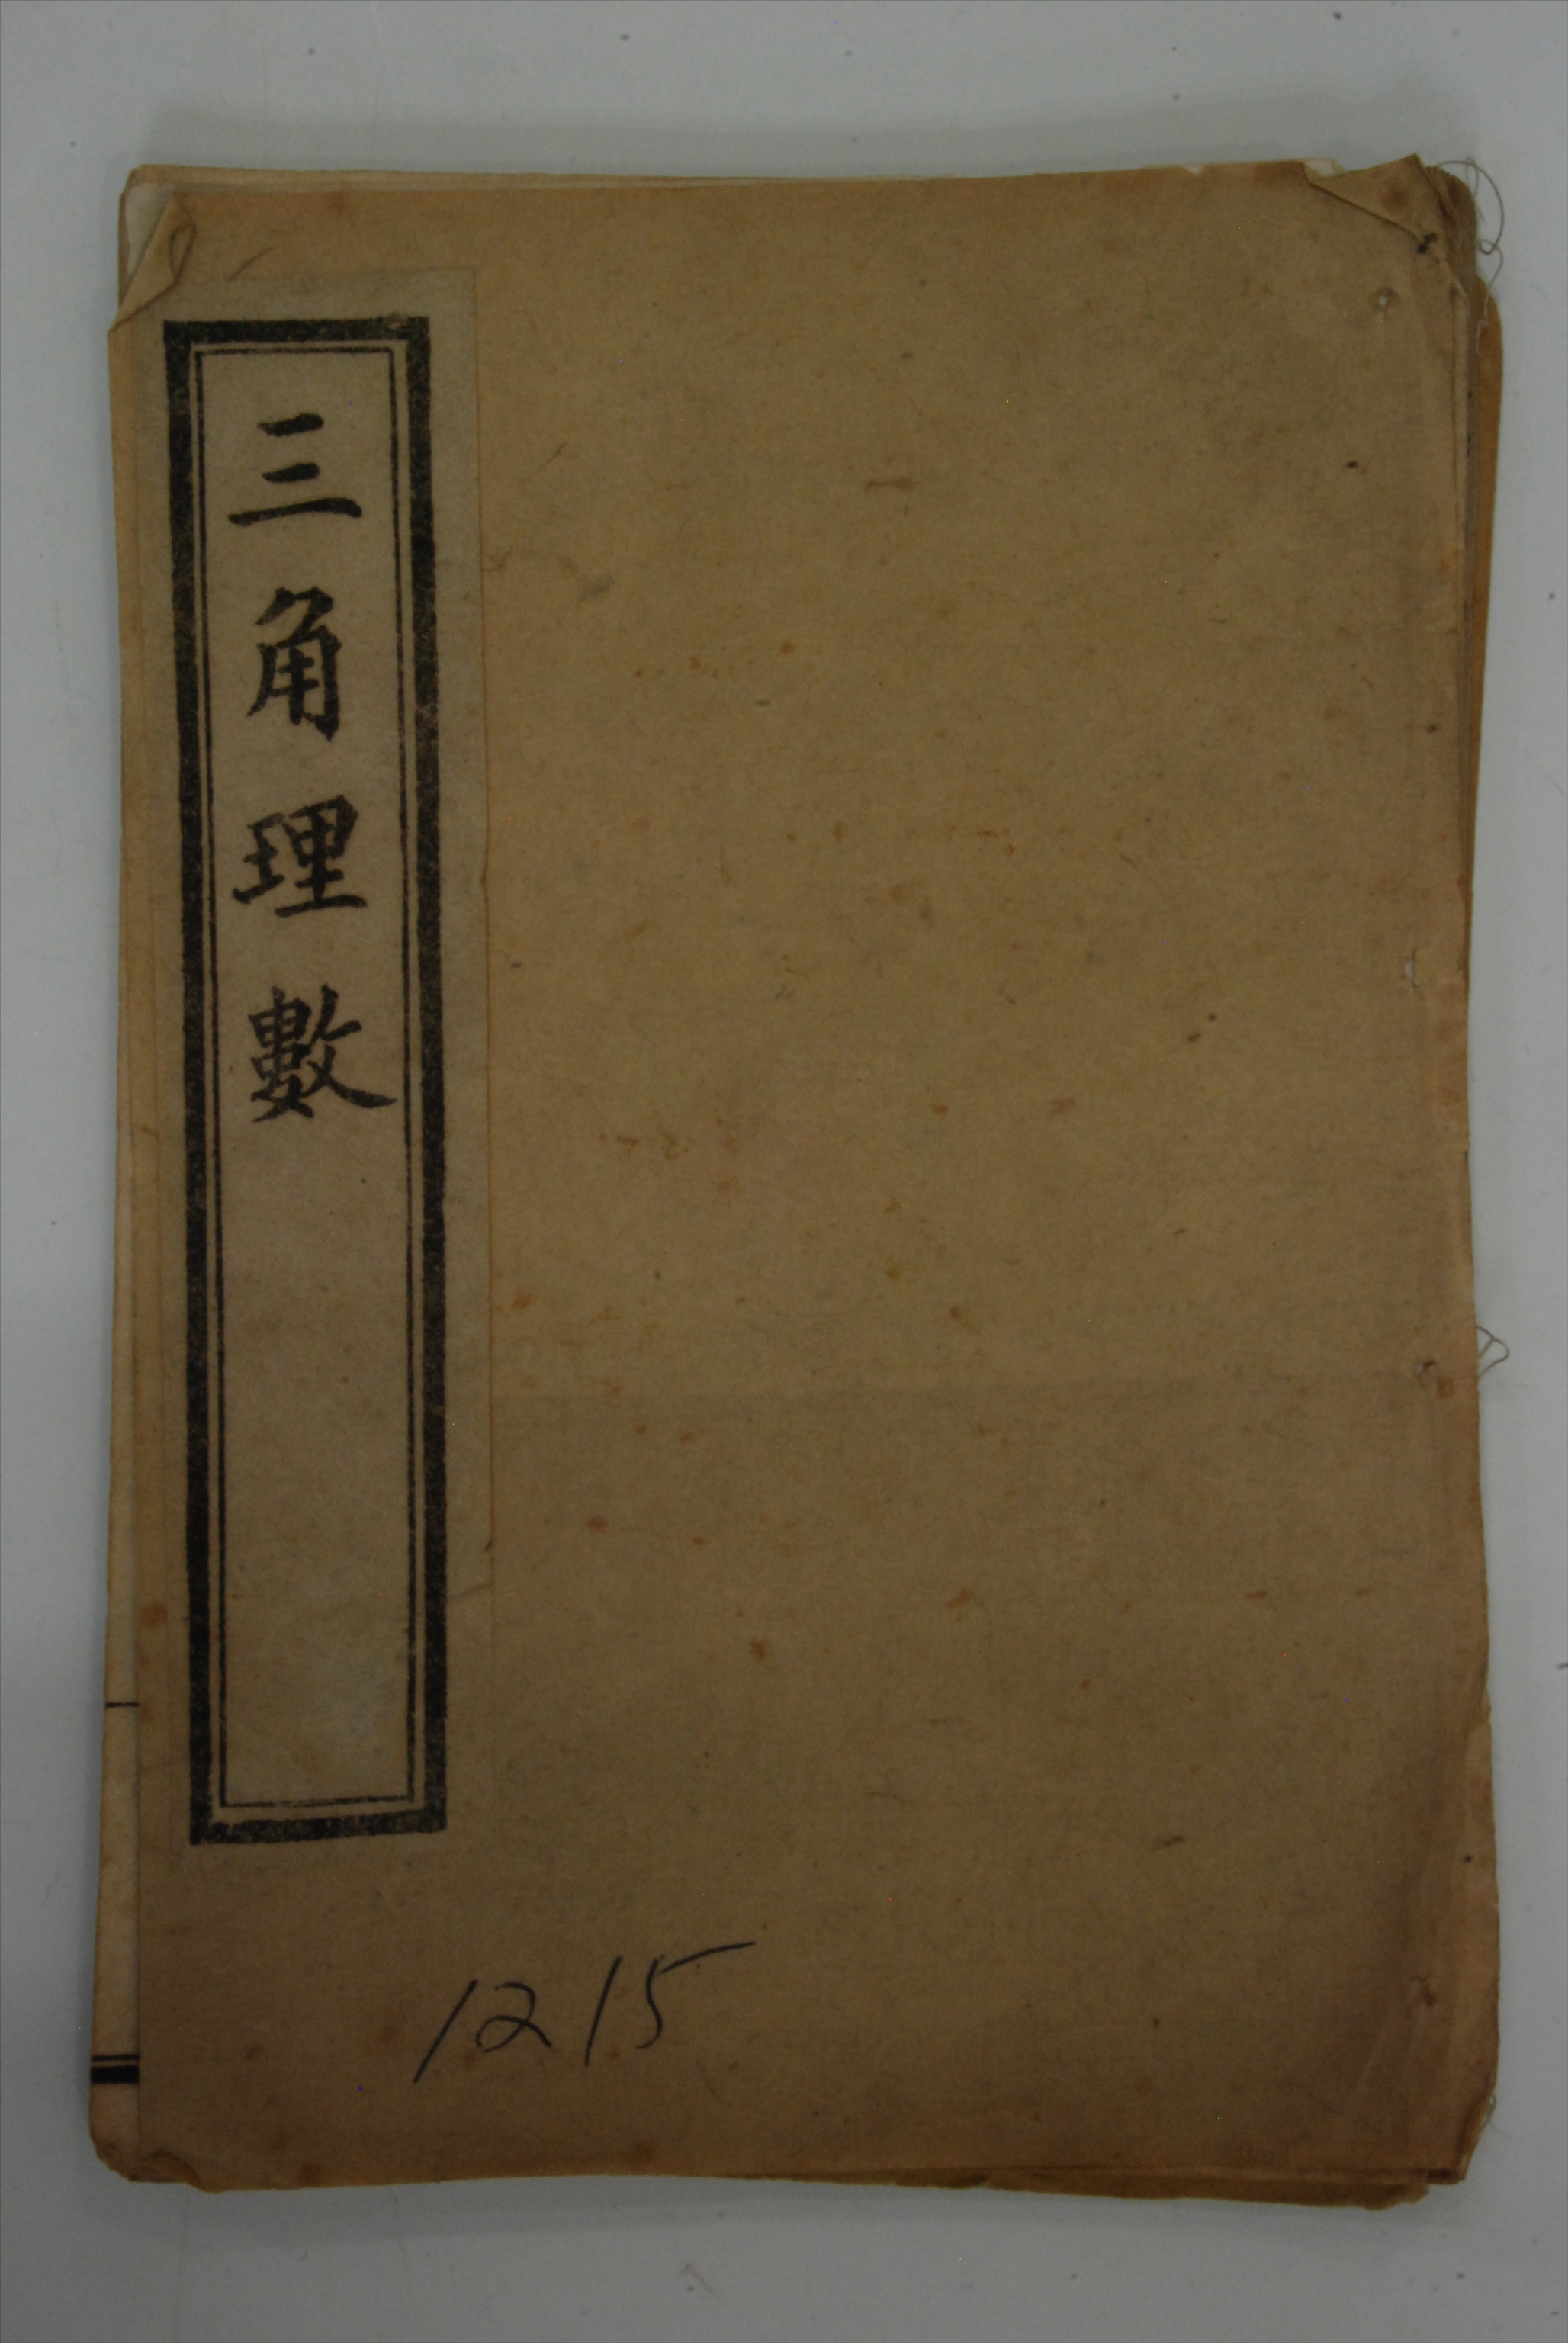 三角理數
1215